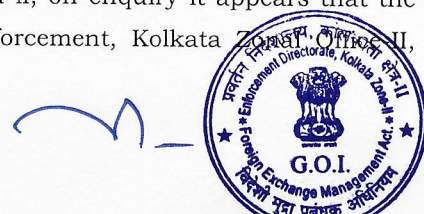 on enquiry it appears that the
forcement, Kolkata Zonal Office-II,
Enforcement Directorate, Kolkata Zone-II
Foreign Exchange Management Act.
G.O.I.
विदेशी मुद्रा प्रबंधक अधिनियम